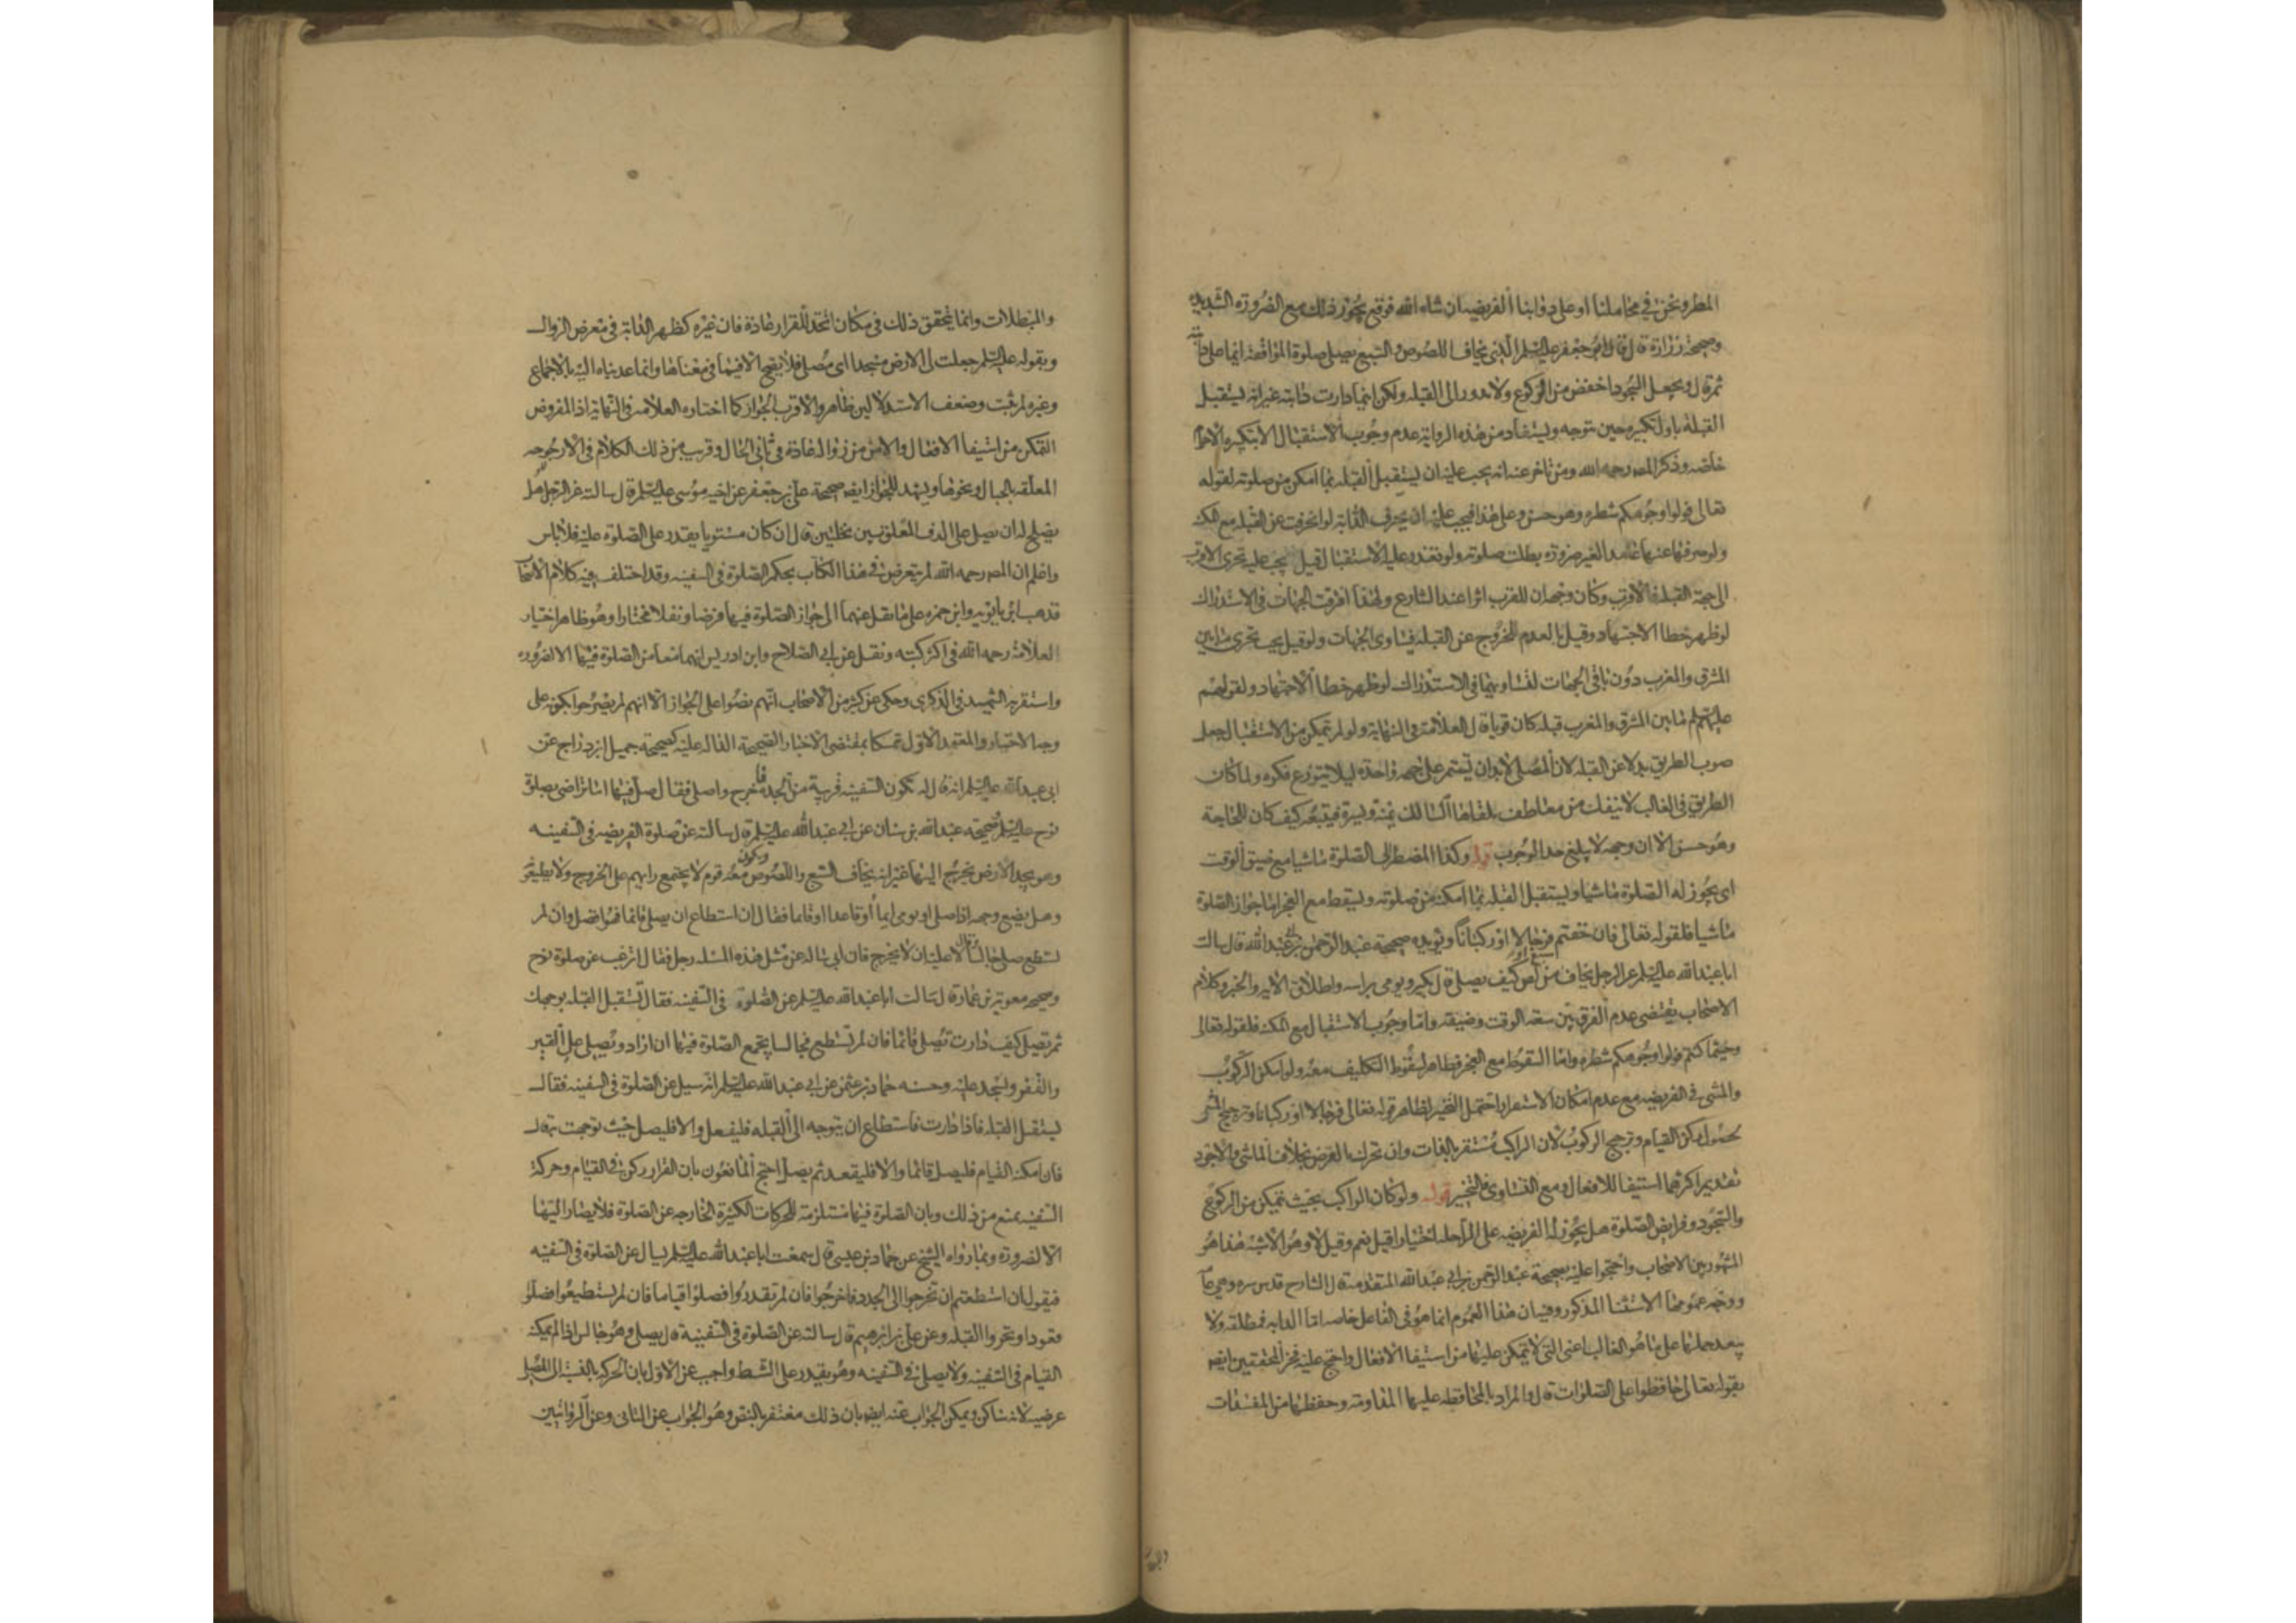 المطر ونحن في محاملنا او على دوابنا الفريضه ان شاء الله فوقع يجوز ذلك مع الضرورة الشديده
وصحيحة زرارة قال قال ابو جعفر عليه السلم الذي يخاف اللصوص السبع يصلى صلوة المواقفة ايما على دابته
ثم قال ويجعل السجود اخفض من الركوع ولا يدور الى القبله ولكن اينما دارت دابته غير انه يستقبل
القبلة باول تكبيره حين يتوجه ويستفاد من هذه الرواية عدم وجوب الاستقبال الا بتكبيرة الاحرام
خاصه وذكر المص رحمه الله ومن تاخر عنه انه يجب عليه ان يستقبل القبله بما امكن من صلوته لقوله
تعالى فولوا وجوهكم شطره وهو حسن وعلى هذا فيجب عليه ان يحرف الدابة لو انحرفت عن القبله مع المكنه
ولو حرفها عنها عامدا لغير ضرورة بطلت صلوته ولو تعذر عليه الاستقبال قيل يجب عليه تحرى الاقرب
الى جهة القبله فالاقرب وكان وجهه ان للقرب اثرا عند الشارع ولهذا افترقت الجهات في الاستدراك
لو ظهر خطا الاجتهاد وقيل بالعدم للخروج عن القبله فيتساوى الجهات ولو قيل يجب تحرى ما بين
المشرق والمغرب دون باقى الجهات لتساويهما في الاستدراك لو ظهر خطا الاجتهاد ولقولهم
عليهم السلم ما بين المشرق والمغرب قبله كان قويا قال العلامة في النهاية ولو لم يتمكن من الاستقبال جعل
صوب الطريق بدلا عن القبله لان المصلى لا بد ان يستمر على جهة واحدة ليلا يتوزع فكره ولما كان
الطريق في الغالب لا ينفك من معاطف يلقاها السالك يمنة ويسرة فيتبعه كيف كان للحاجة
وهو حسن الا ان وجهه لا يبلغ حد الوجوب قوله وكذا المضطر الى الصلوة ماشيا مع ضيق الوقت
اى يجوز له الصلوة ماشيا ويستقبل القبله بما امكنه من صلوته ويسقط مع العجز اما جواز الصلوة
ماشيا فلقوله تعالى فان خفتم فرجالا او ركبانا ويؤيده صحيحة عبد الرحمن بن ابي عبد الله قال سالت
ابا عبد الله عليه السلم عن الرجل يخاف من سبع او لص كيف يصلى قال يكبر ويومى براسه واطلاق الايه والخبر وكلام
الاصحاب يقتضى عدم الفرق بين سعة الوقت وضيقه واما وجوب الاستقبال مع المكنه فلقوله تعالى
وحيثما كنتم فولوا وجوهكم شطره واما السقوط مع العجز فظاهر لسقوط التكليف معه ولو امكن الركوب
والمشى في الفريضه مع عدم امكان الاستقرار احتمل التخيير لظاهر قوله تعالى فرجالا او ركبانا وترجيح المشى
لحصول ركن القيام وترجيح الركوب لان الراكب مستقر بالذات وان تحرك بالعرض بخلاف الماشى والاجود
تقديم اكثرهما استيفا للافعال ومع التساوى فالتخيير قوله ولو كان الراكب بحيث يتمكن من الركوع
والسجود وفرايض الصلوة هل يجوز له الفريضه على الراحله اختيارا قيل نعم وقيل لا وهو الاشبه هذا هو
المشهور بين الاصحاب واحتجوا عليه بصحيحة عبد الرحمن بن ابي عبد الله المتقدمة قال الشارح قدس سره وهي عامة
ووجه عمومها الاستثنا المذكور وفيه ان هذا العموم انما هو في الفاعل خاصه اما الدابه فمطلقه ولا
يبعد حملها على ما هو الغالب اعنى التي لا يتمكن عليها من استيفا الافعال واحتج عليه فخر المحققين ايضا
بقوله تعالى حافظوا على الصلوات قال والمراد بالمحافظه عليها المداومة وحفظها من المفسدات
والمبطلات
والمبطلات وانما يتحقق ذلك في مكان اتخذ للقرار عادة فان غيره كظهر الدابة في معرض الزوال
وبقوله عليه السلم جعلت لى الارض مسجدا اى مصلى فلا يصح الا فيما في معناها وانما عديناه اليه بالاجماع
وغيره لم يثبت وضعف الاستدلالين ظاهر والاقرب الجواز كما اختاره العلامه في النهاية اذ المفروض
التمكن من استيفا الافعال والامن من زوال العادة في ثاني الحال وقريب من ذلك الكلام في الارجوحه
المعلقه بالحبال ونحوها ويشهد للجواز ايضا صحيحة على بن جعفر عن اخيه موسى عليه السلم قال سالته عن الرجل هل
يصلح له ان يصلى على الرف المعلق بين نخلتين قال ان كان مستويا يقدر على الصلوة عليه فلا باس
واعلم ان المص رحمه الله لم يتعرض في هذا الكتاب بحكم الصلوة في السفينه وقد اختلف فيه كلام الاصحاب
فذهب ابن بابويه وابن حمزه على ما نقل عنهما الى جواز الصلوة فيها فرضا ونفلا مختارا وهو ظاهر اختيار
العلامة رحمه الله في اكثر كتبه ونقل عن ابي الصلاح وابن ادريس انهما منعا من الصلوة فيها الا لضروره
واستقربه الشهيد في الذكرى وحكى عن كثير من الاصحاب انهم نصوا على الجواز الا انهم لم يصرحوا بكونه على
وجه الاختيار والمعتمد الاول تمسكا بمقتضى الاخبار الصحيحة الداله عليه كصحيحة جميل بن دراج عن
ابي عبد الله عليه السلم انه قال له تكون السفينه قريبة من الجد فاخرج واصلى فقال صل فيها اما ترضى بصلوة
نوح عليه السلم وصحيحة عبد الله بن سنان عن ابي عبد الله عليه السلم قال سالته عن صلوة الفريضه في السفينه
وهو يجد الارض يخرج اليها غير انه يخاف السبع واللصوص ويكون معه قوم لا يجتمع رايهم على الخروج ولا يطيعونه
وهل يضع وجهه اذا صلى او يومى ايماء او قاعدا او قايما فقال ان استطاع ان يصلى قائما فهو افضل وان لم
يستطع صلى جالسا وقال لا عليه ان لا يخرج فان ابي ساله عن مثل هذه المسله رجل فقال اترغب عن صلوة نوح
وصحيحه معوية بن عمار قال سالت ابا عبد الله عليه السلم عن الصلوة في السفينه فقال تستقبل القبله بوجهك
ثم تصلى كيف دارت تصلى قائما فان لم تستطع فجالسا يجمع الصلوة فيها ان اراد ويصلى على القير
والقفر ويسجد عليه وحسنه حماد بن عثمن عن ابي عبد الله عليه السلم انه سيل عن الصلوة في السفينه فقال
يستقبل القبله فاذا دارت فاستطاع ان يتوجه الى القبله فليفعل والا فليصل حيث توجهت به قال
فان امكنه القيام فليصل قائما والا فليقعد ثم يصل احتج المانعون بان القرار ركن في القيام وحركة
السفينه يمنع من ذلك وبان الصلوة فيها مستلزمة للحركات الكثيرة الخارجه عن الصلوة فلا يصار اليها
الا لضرورة وبما رواه الشيخ عن حماد بن عيسى قال سمعت ابا عبد الله عليه السلم يسال عن الصلوة في السفينه
فيقول ان استطعتم ان تخرجوا الى الجدد فاخرجوا فان لم تقدروا فصلوا قياما فان لم تستطيعوا فصلوا
قعودا وتحروا القبله وعن على بن ابرهيم قال سالته عن الصلوة في السفينة قال يصلى وهو جالس اذا لم يمكنه
القيام في السفينه ولا يصلى في السفينه وهو يقدر على الشط واجيب عن الاول بان الحركه بالنسبة الى المصلى
عرضيه لانه ساكن ويمكن الجواب عنه ايضا بان ذلك مغتفر بالنص وهو الجواب عن الثانى وعن الروايتين